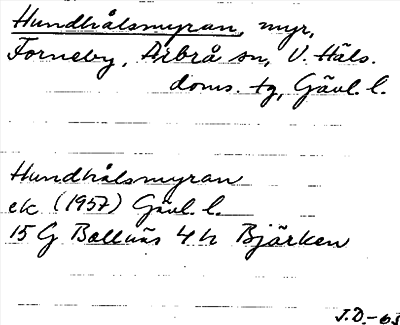 Hundhålsmyran, myr,
Forneby, Arbrå sn, V. Häls.
doms. tg, Gävl. l.
Hundhålsmyran
ek (1957) Gävl. l.
15 G Bollnäs 4 h Bjärken
J.D.-63